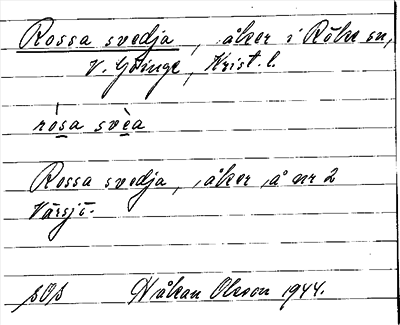 Rossa svedja, åker i Röke sn,
V. Göinge, Krist. l.
ròsa svèa
Rossa svedja, åker å nr 2
Värsjö.
SOS Håkan Olsson 1944.